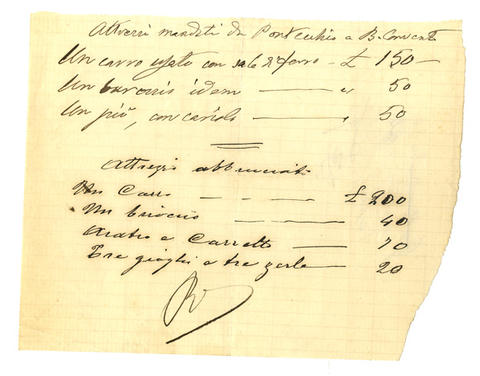 Attrezzi mandati da Pontecchio a B. Convento
Un carro usato con sale di ferro — £ 150 —
Un baroccio idem — „ 50
Un più, con cariola — „ 50
Attrezzi abbruciati
Un Carro — £ 200
Un biroccio — 40
Aratro e Carretto — 70
Tre gioghi e tre zerle — 20